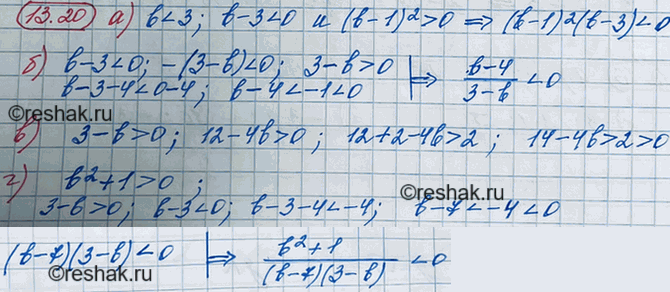 13.20 а) b<3; b-3<0 и (b-1)²>0 ⇒ (b-1)²(b-3)<0
б) b-3<0; -(3-b)<0; 3-b>0 |⇒ b-4/3-b <0
b-3-4<0-4; b-4<-1<0
в) 3-b>0; 12-4b>0; 12+2-4b>2; 14-4b>2>0
г) b²+1>0;
3-b>0; b-3<0; b-3-4<-4; b-7<-4<0
(b-7)(3-b)<0 |⇒ b²+1/(b-7)(3-b) <0
©reshak.ru
©reshak.ru
©reshak.ru
©reshak.ru